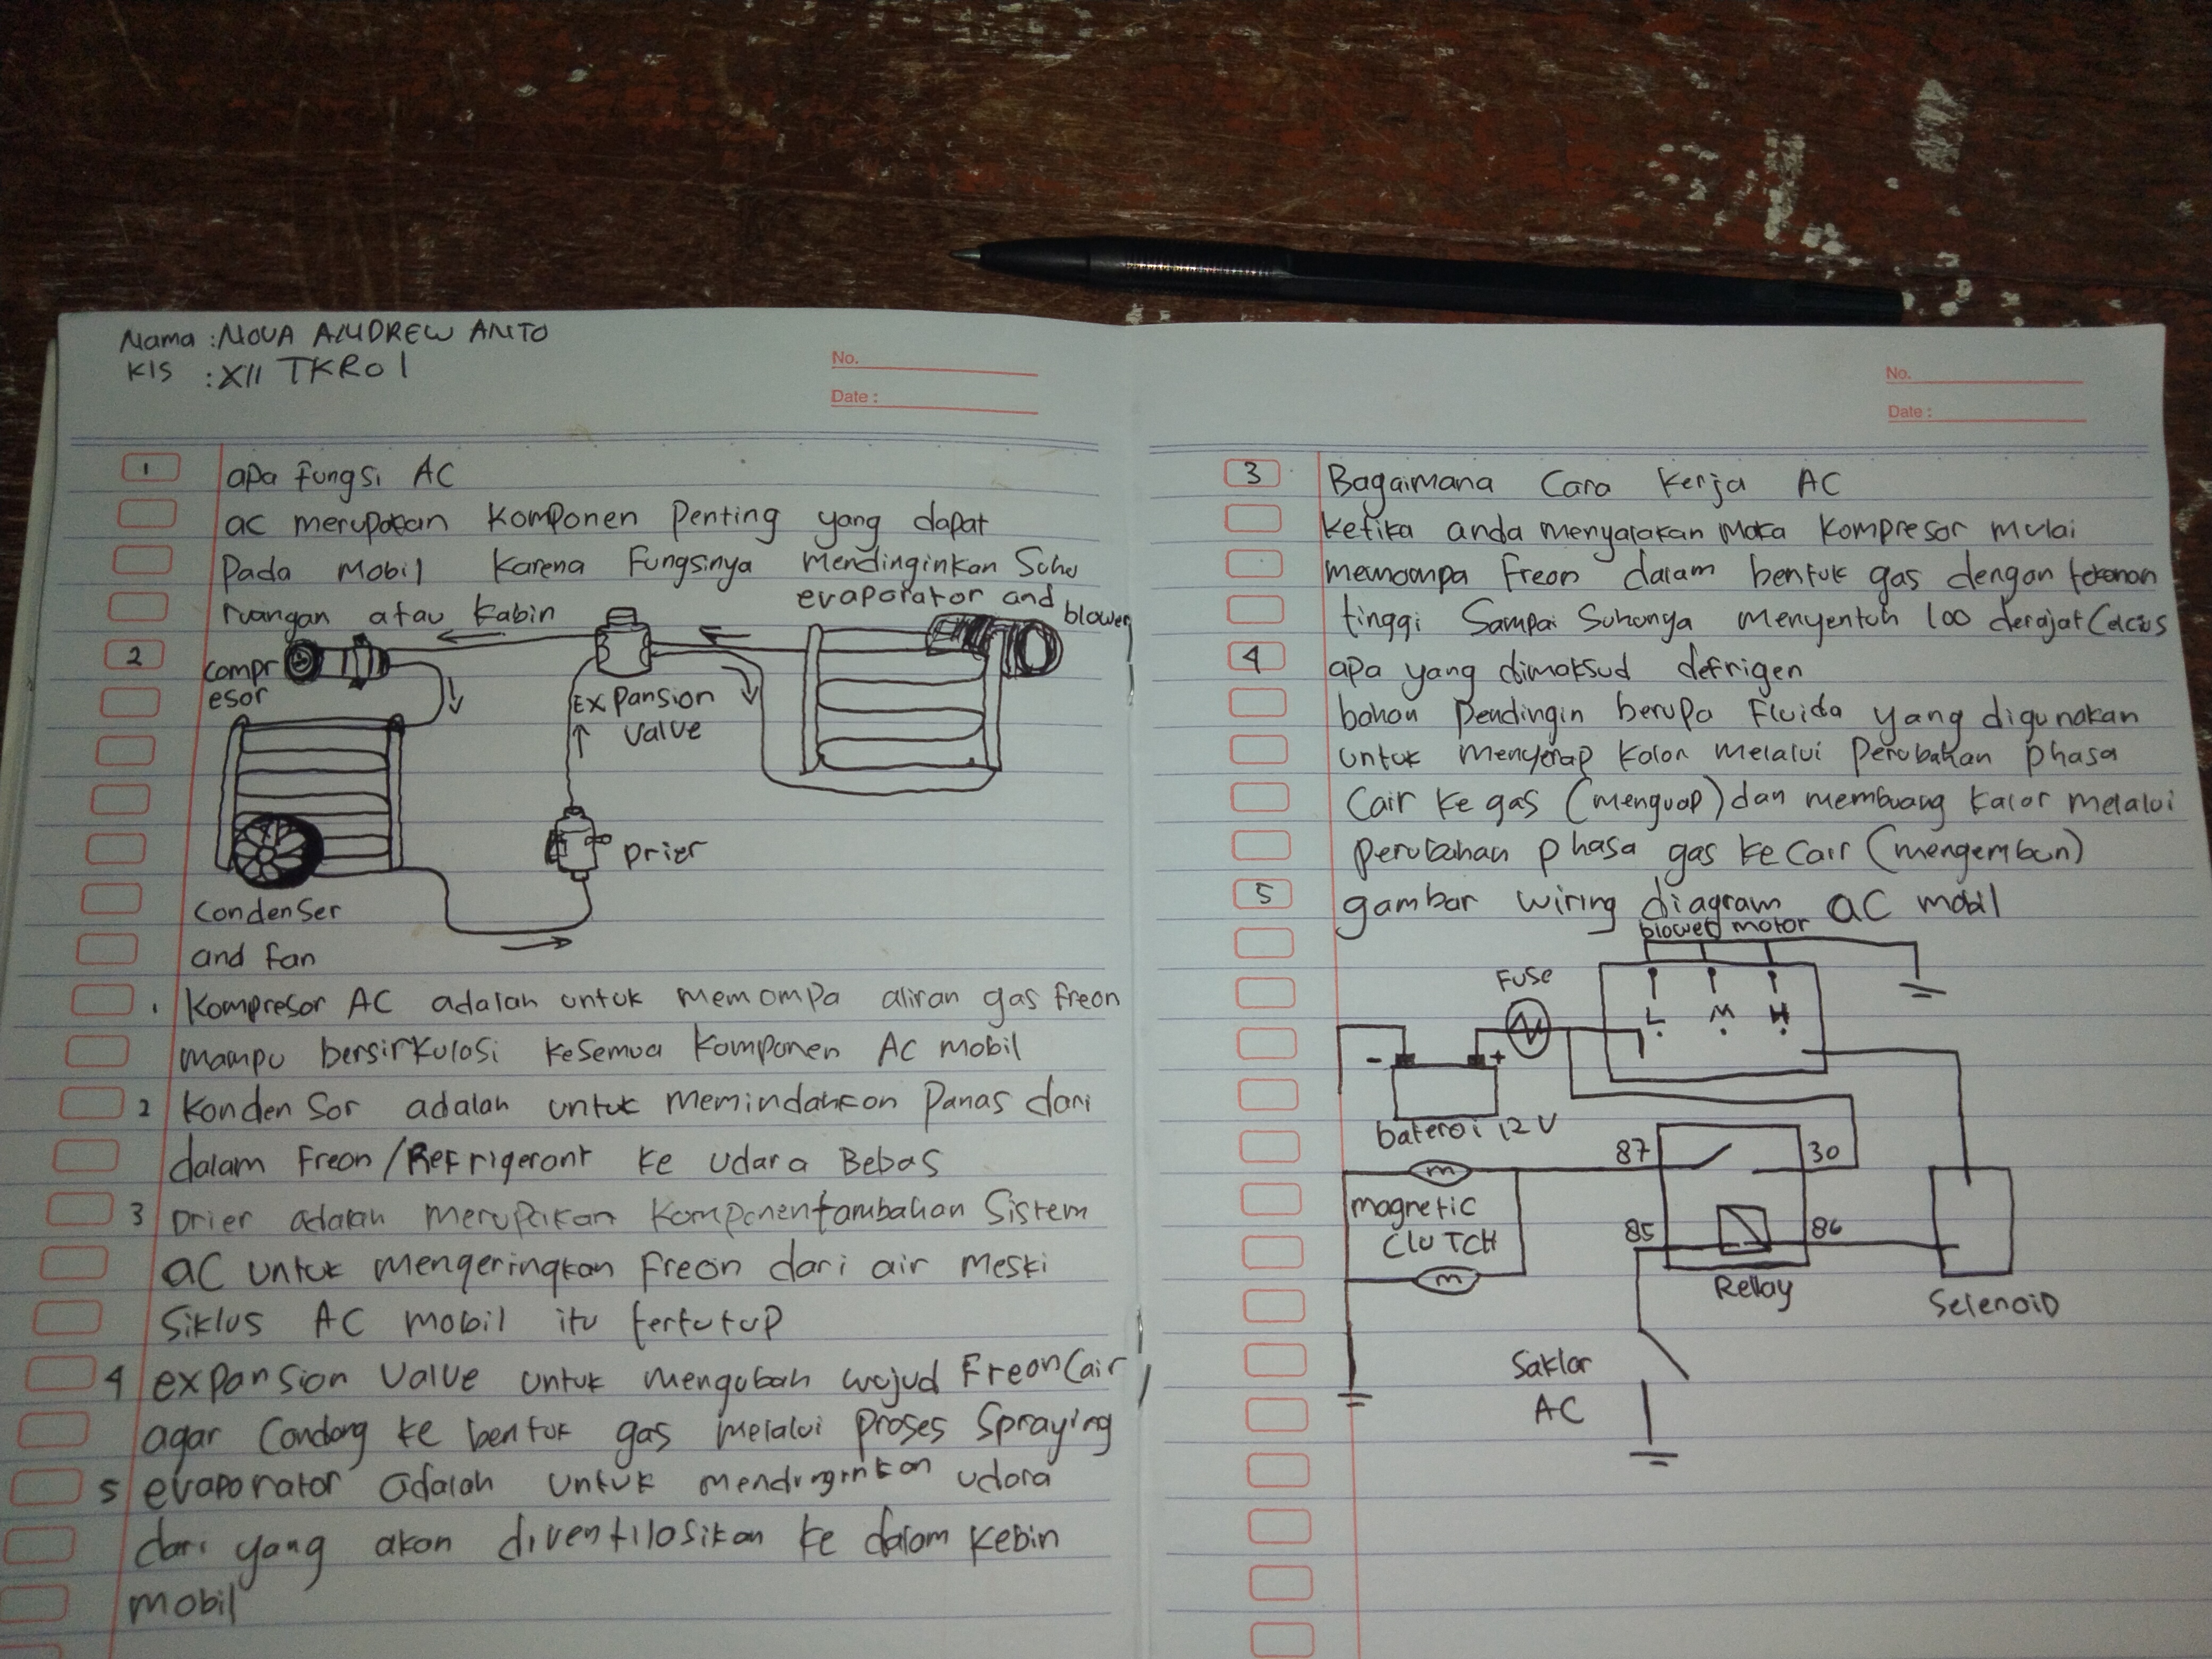 Nama : NOVA ANDREW ANTO
Kls : XII TKRO 1
No.
Date :
1 apa fungsi AC
ac merupakan komponen penting yang dapat
pada mobil karena fungsinya mendinginkan Suhu
ruangan atau kabin
evaporator and blower
2
compr
esor
EXpansion
valve
Drier
Condenser
and fan
1 Kompresor AC adalah untuk memompa aliran gas freon
mampu bersirkulasi kesemua komponen AC mobil
2 Konden Sor adalah untuk memindahkan Panas dari
dalam Freon/Refrigerant ke udara Bebas
3 Drier adalah merupakan komponen tambahan Sistem
AC untuk mengeringkan Freon dari air meski
Siklus AC mobil itu tertutup
4 expansion Valve untuk mengubah wujud Freon Cair
agar Condong ke bentuk gas melalui proses Spraying
5 evaporator adalah untuk mendinginkan udara
dari yang akan diventilasikan ke dalam kebin
mobil
No.
Date :
3 Bagaimana Cara Kerja AC
ketika anda menyalakan Maka kompresor mulai
memompa Freon dalam bentuk gas dengan tekanan
tinggi Sampai Suhunya menyentuh 100 derajat Celcius
4 apa yang dimaksud defrigen
bahan pendingin berupa Fluida yang digunakan
untuk menyerap kalor melalui perubahan phasa
Cair ke gas (menguap) dan membuang kalor melalui
perubahan phasa gas ke Cair (mengembun)
5 gambar wiring diagram AC mobil
blower motor
Fuse
L M H
- +
baterai 12 V
87 30
magnetic
CLUTCH
m
m
85 86
Rellay
Selenoid
Saklar
AC